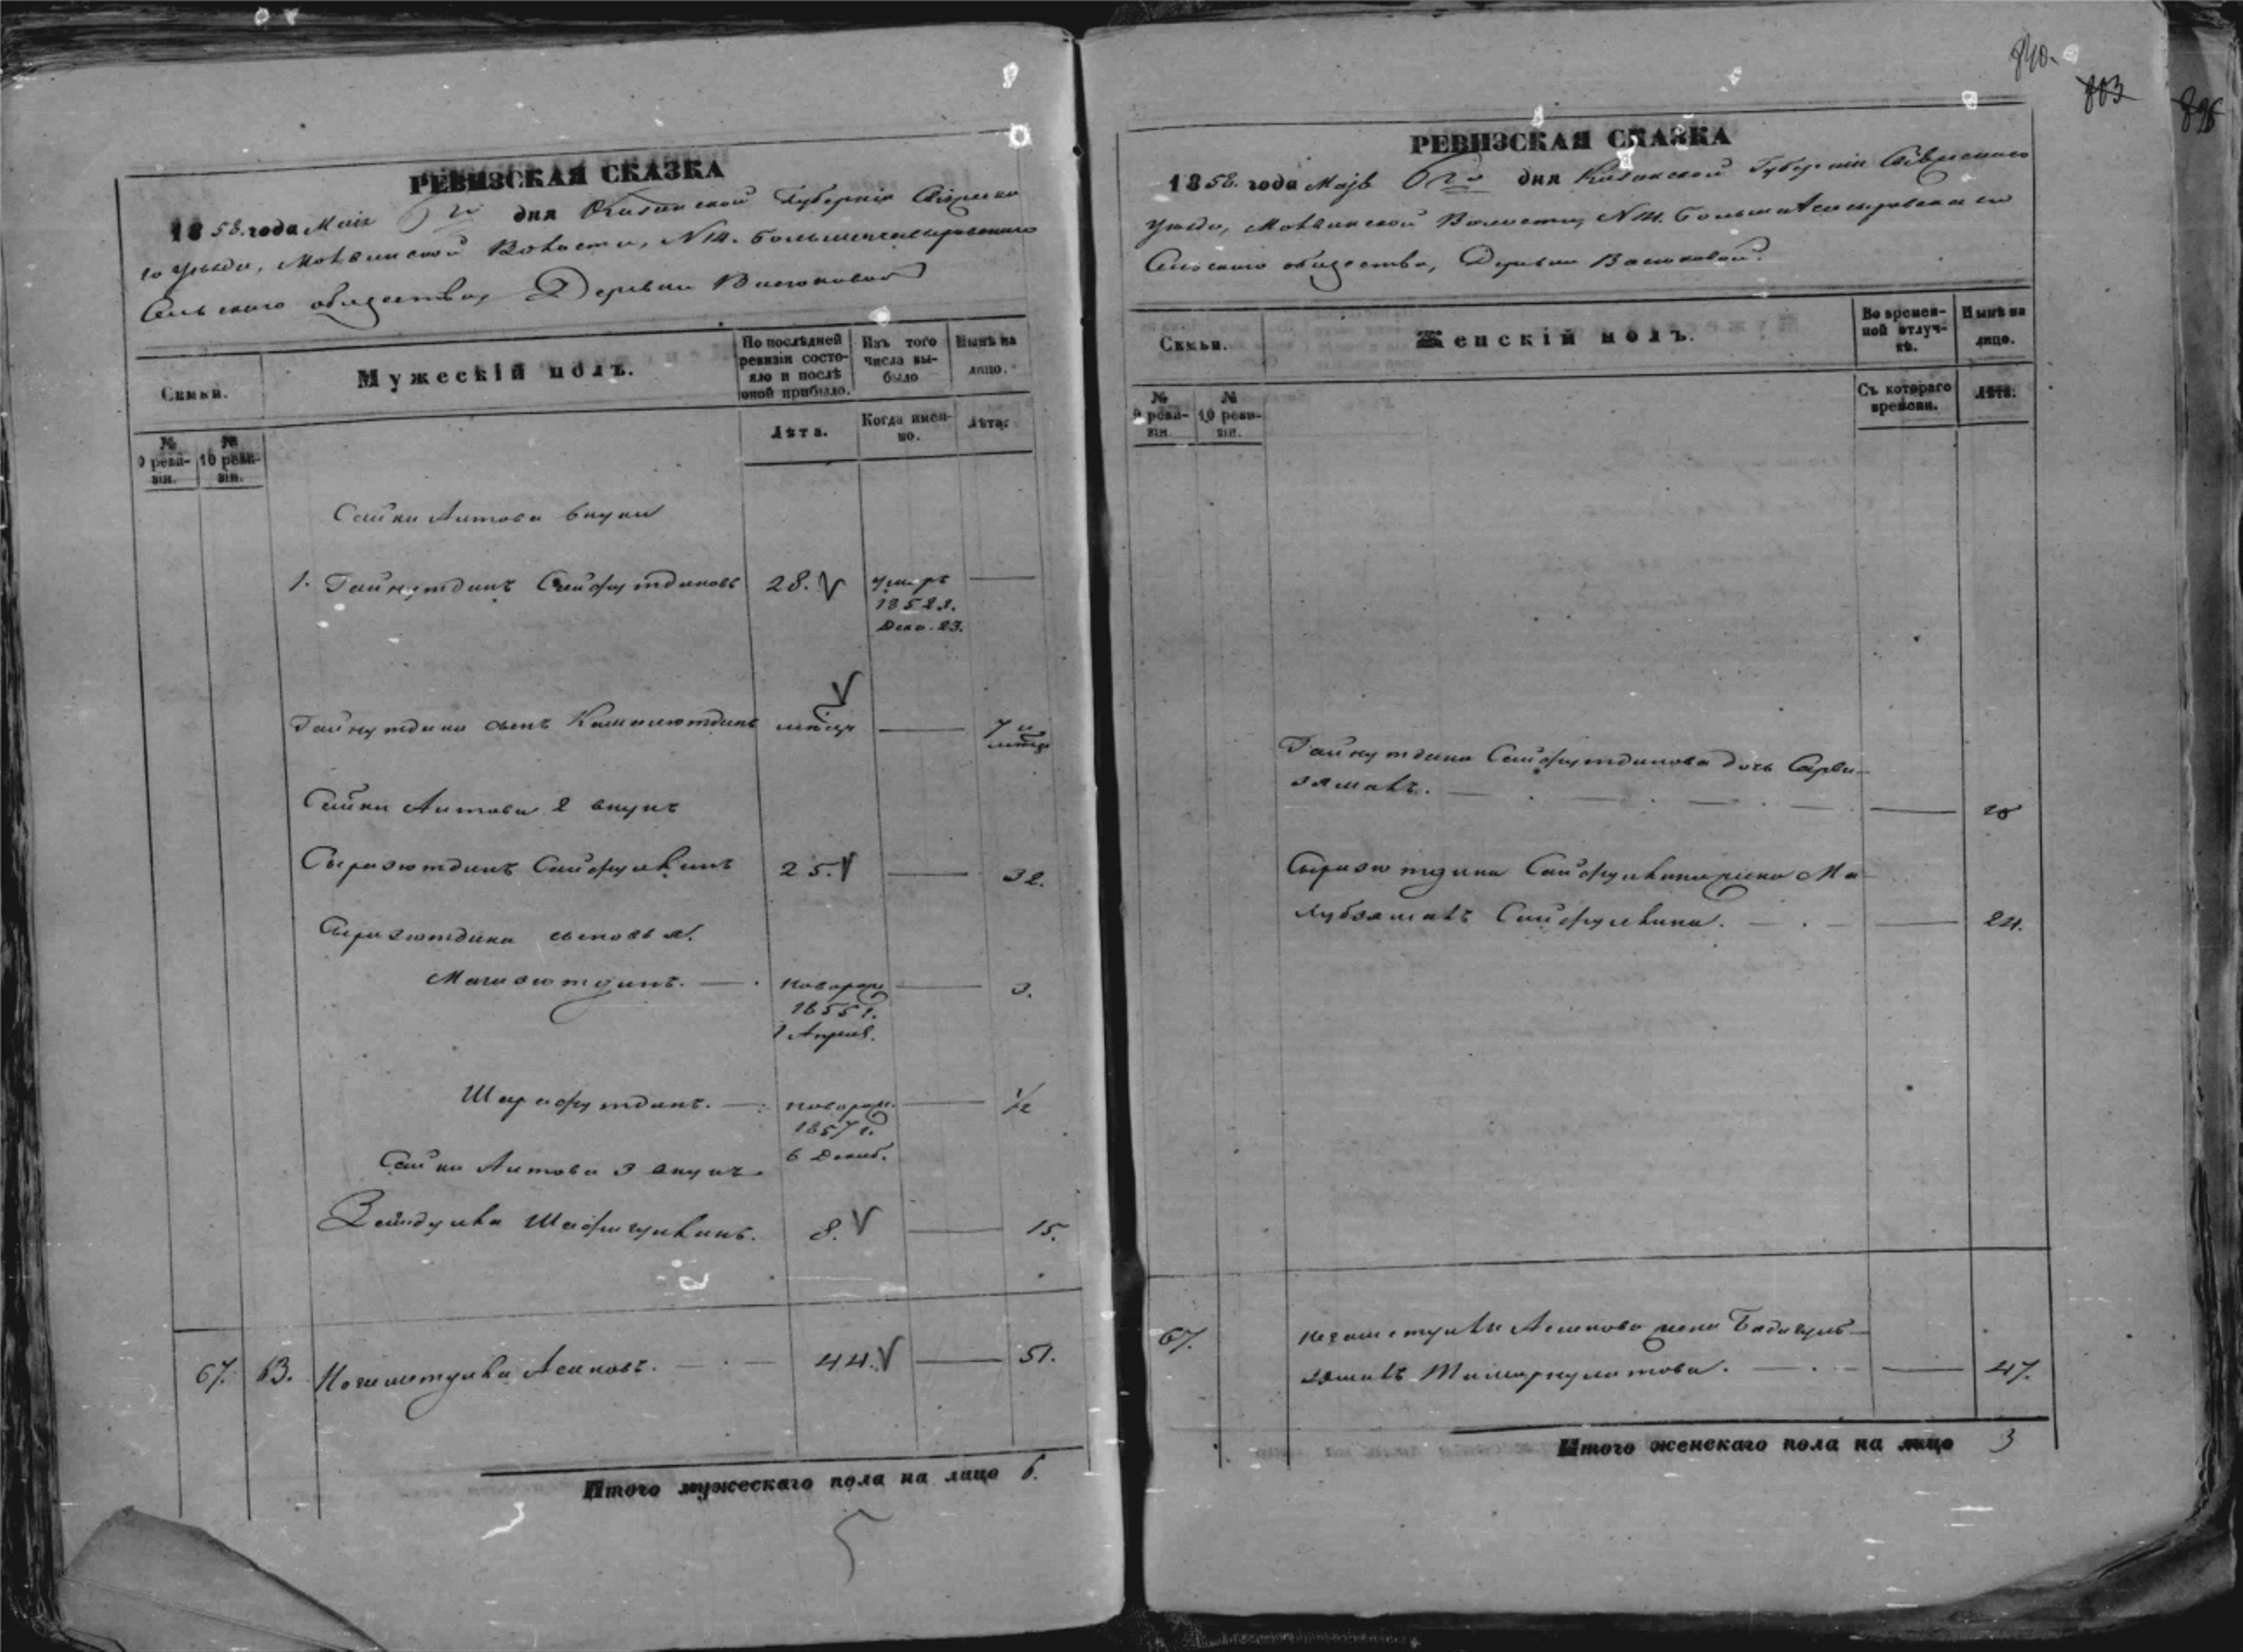 840.
803
896
РЕВИЗСКАЯ СКАЗКА
1858. года Маія 6го дня Казанской Губерніи Свіяжска
го Уѣзда, Молвинской Волости, N 14.
Сельскаго общества, Деревни Васюковой
Семьи.
Мужескій полъ.
По послѣдней ревизіи состояло и послѣ оной прибыло.
Изъ того числа выбыло
Нынѣ на лицо.
№ 9 ревизіи.
№ 10 ревизіи.
Лѣта.
Когда именно.
Лѣта.
Сайки Аитова внуки
1. Гайнутдинъ Сайфутдиновъ 28. V умеръ 1852 г. Дека. 23. —
Гайнутдина сынъ Камалютдинъ мѣсяц V — 7 и мѣсц
Сайки Аитова 2 внукъ
Сыразютдинъ Сайфулкинъ 25. V — 32.
Сыразютдина сыновья.
Магизютдинъ. — . новорож 1855 г. 1 Апреля. — 3.
Шарафутдинъ. — . новорож. 1857 г. 6 Декаб. — 1/2
Сайки Аитова 3 внукъ
Зейдулка Шафигулкинъ. 8. V — 15.
67. 63. Асановъ. — . — 44. V — 51.
Итого мужескаго пола на лицо 6.
РЕВИЗСКАЯ СКАЗКА
1858. года Маія 6го дня Казанской Губерніи Свіяжскаго
Уѣзда, Молвинской Волости, N 14.
Сельскаго общества, Деревни Васюковой.
Семьи.
Женскій полъ.
Во временной отлучкѣ.
Нынѣ на лицо.
№ 9 ревизіи.
№ 10 ревизіи.
Съ котораго времени.
Лѣта.
Гайнутдина Сайфутдинова дочь Сарви-
— . — . — . — —
Сыразютдина Сайфулкина жена Ма-
Сайфулкина. — . — — 24.
67. Асанова жена Бадигул-
— . — — 47.
Итого женскаго пола на лицо 3